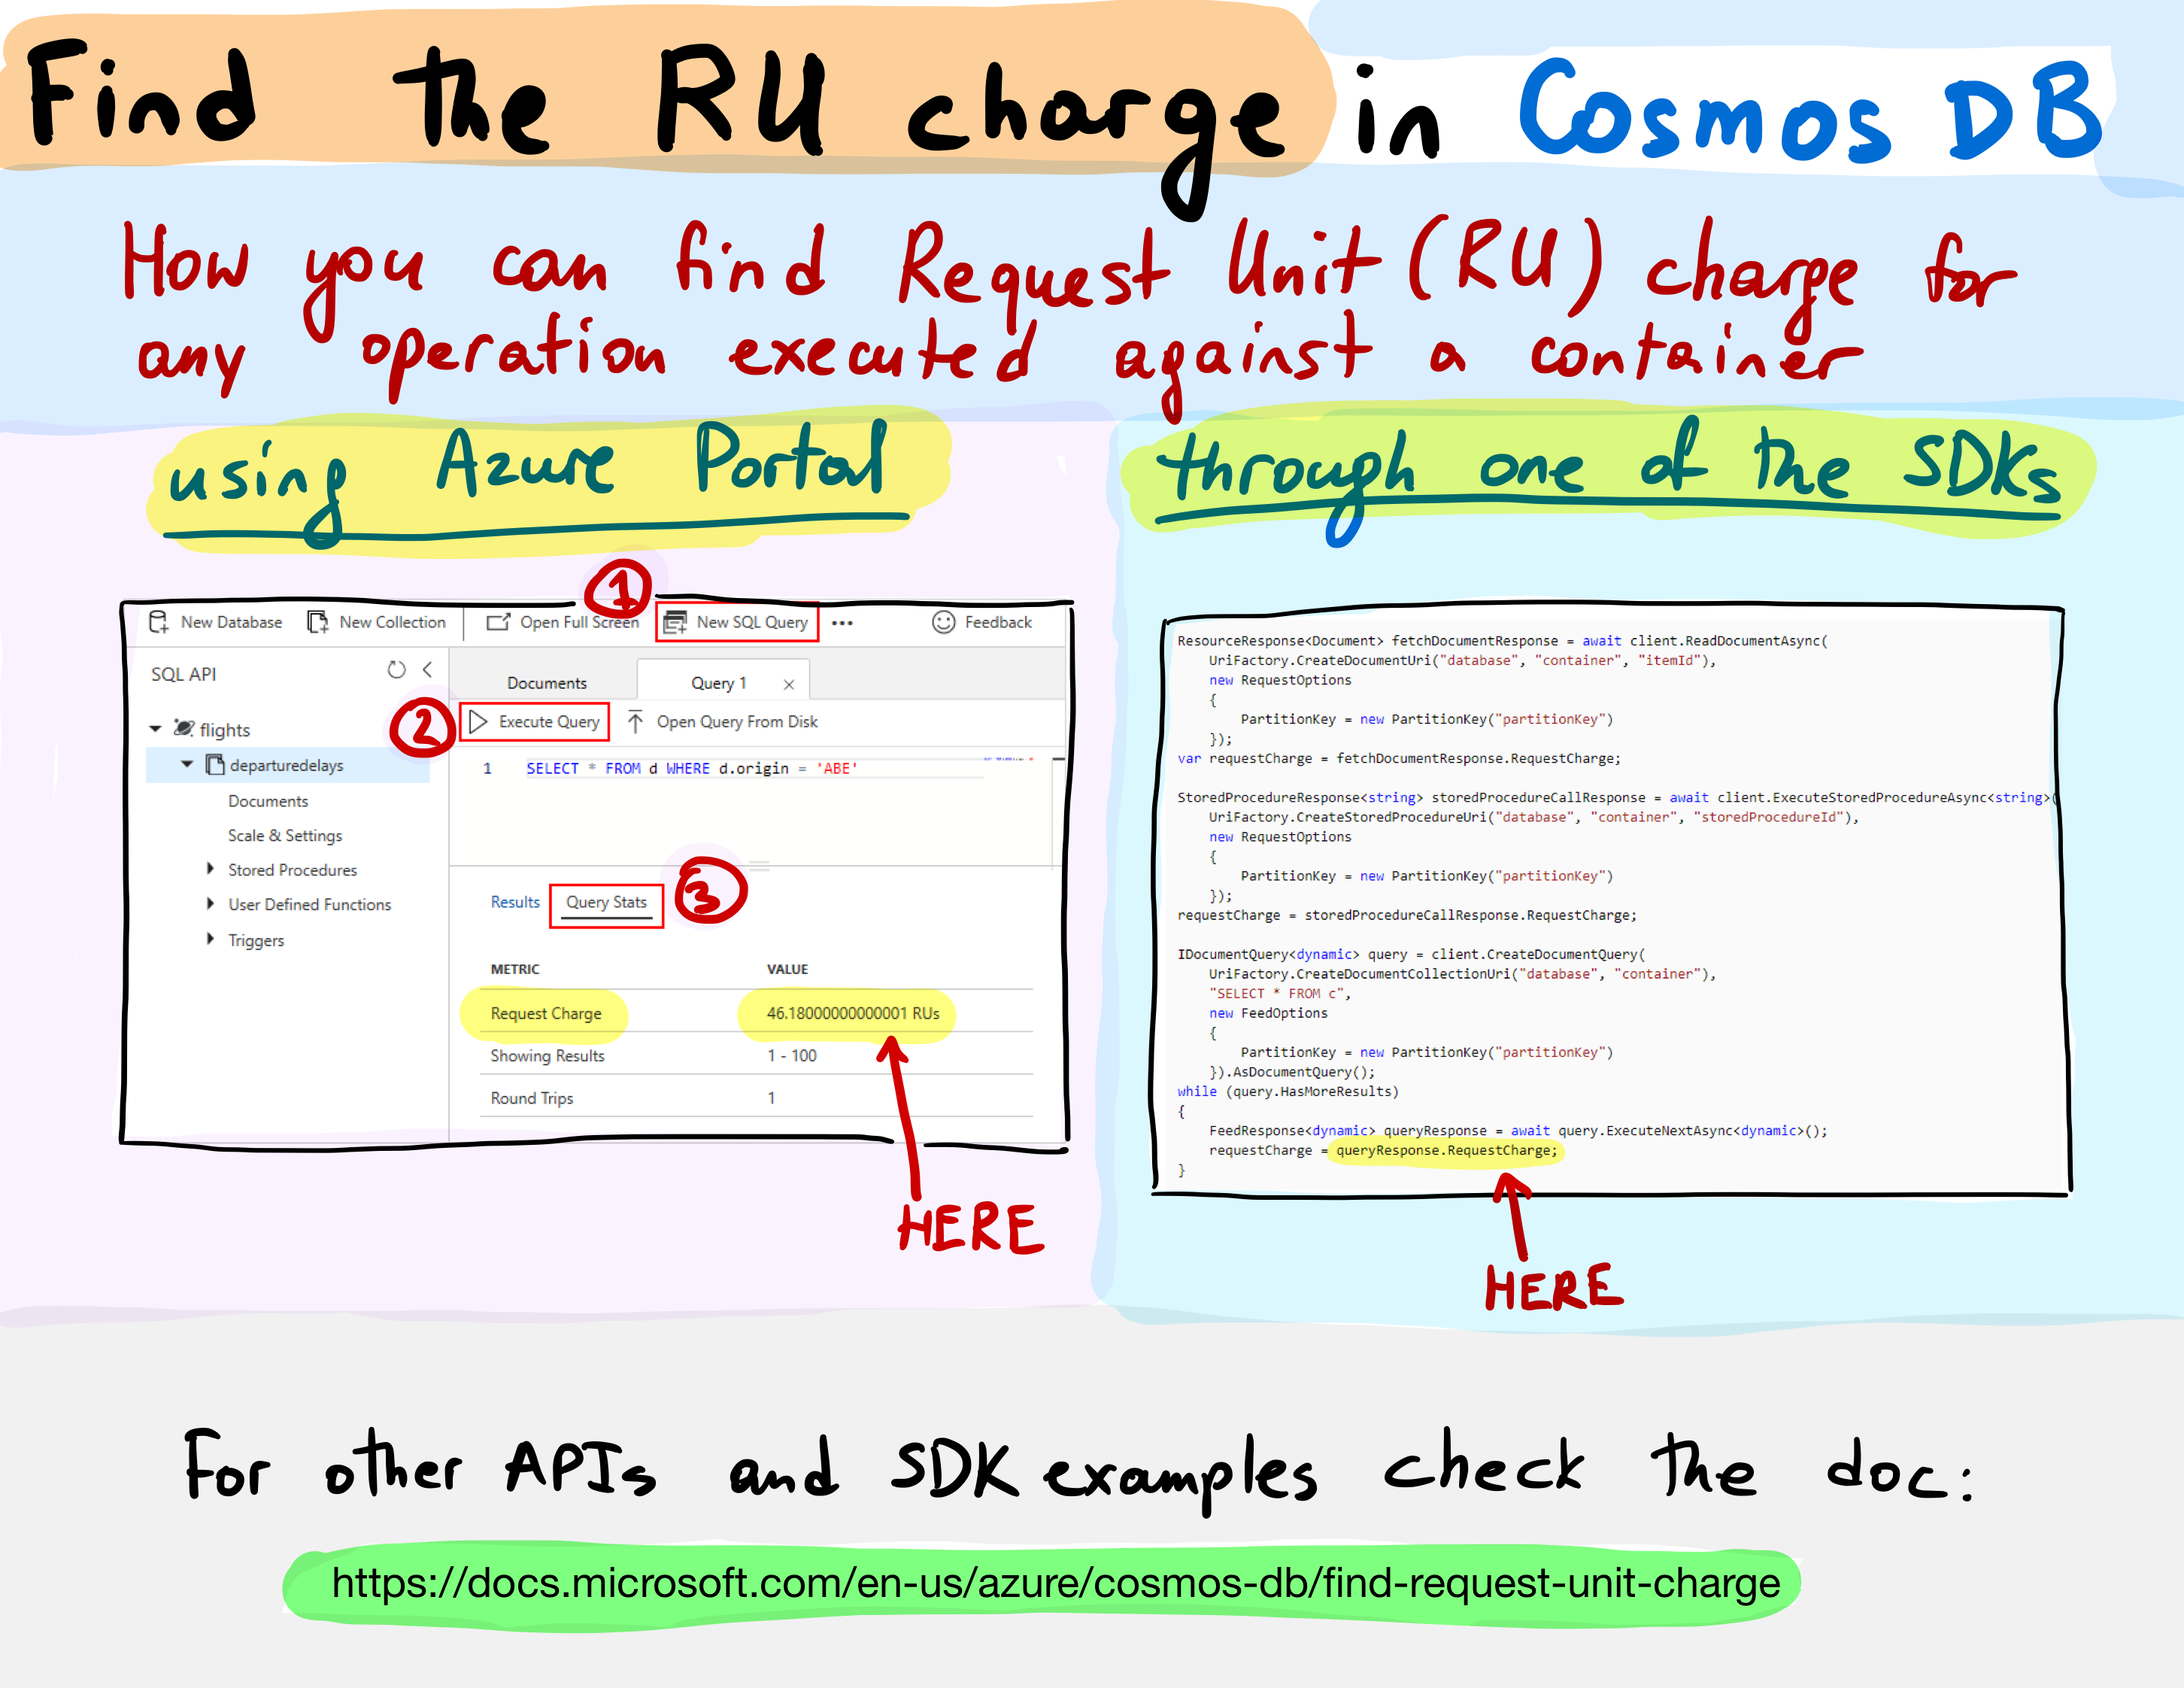 Find the RU charge in Cosmos DB
How you can find Request Unit (RU) charge for
any operation executed against a container
using Azure Portal
1
New Database New Collection Open Full Screen New SQL Query ••• Feedback
SQL API
Documents Query 1
2
Execute Query Open Query From Disk
flights
departuredelays
Documents
Scale & Settings
Stored Procedures
User Defined Functions
Triggers
1 SELECT * FROM d WHERE d.origin = 'ABE'
3
Results Query Stats
METRIC VALUE
Request Charge 46.18000000000001 RUs
Showing Results 1 - 100
Round Trips 1
HERE
through one of the SDKs
ResourceResponse<Document> fetchDocumentResponse = await client.ReadDocumentAsync(
UriFactory.CreateDocumentUri("database", "container", "itemId"),
new RequestOptions
{
PartitionKey = new PartitionKey("partitionKey")
});
var requestCharge = fetchDocumentResponse.RequestCharge;
StoredProcedureResponse<string> storedProcedureCallResponse = await client.ExecuteStoredProcedureAsync<string>(
UriFactory.CreateStoredProcedureUri("database", "container", "storedProcedureId"),
new RequestOptions
{
PartitionKey = new PartitionKey("partitionKey")
});
requestCharge = storedProcedureCallResponse.RequestCharge;
IDocumentQuery<dynamic> query = client.CreateDocumentQuery(
UriFactory.CreateDocumentCollectionUri("database", "container"),
"SELECT * FROM c",
new FeedOptions
{
PartitionKey = new PartitionKey("partitionKey")
}).AsDocumentQuery();
while (query.HasMoreResults)
{
FeedResponse<dynamic> queryResponse = await query.ExecuteNextAsync<dynamic>();
requestCharge = queryResponse.RequestCharge;
}
HERE
For other APIs and SDK examples check the doc:
https://docs.microsoft.com/en-us/azure/cosmos-db/find-request-unit-charge